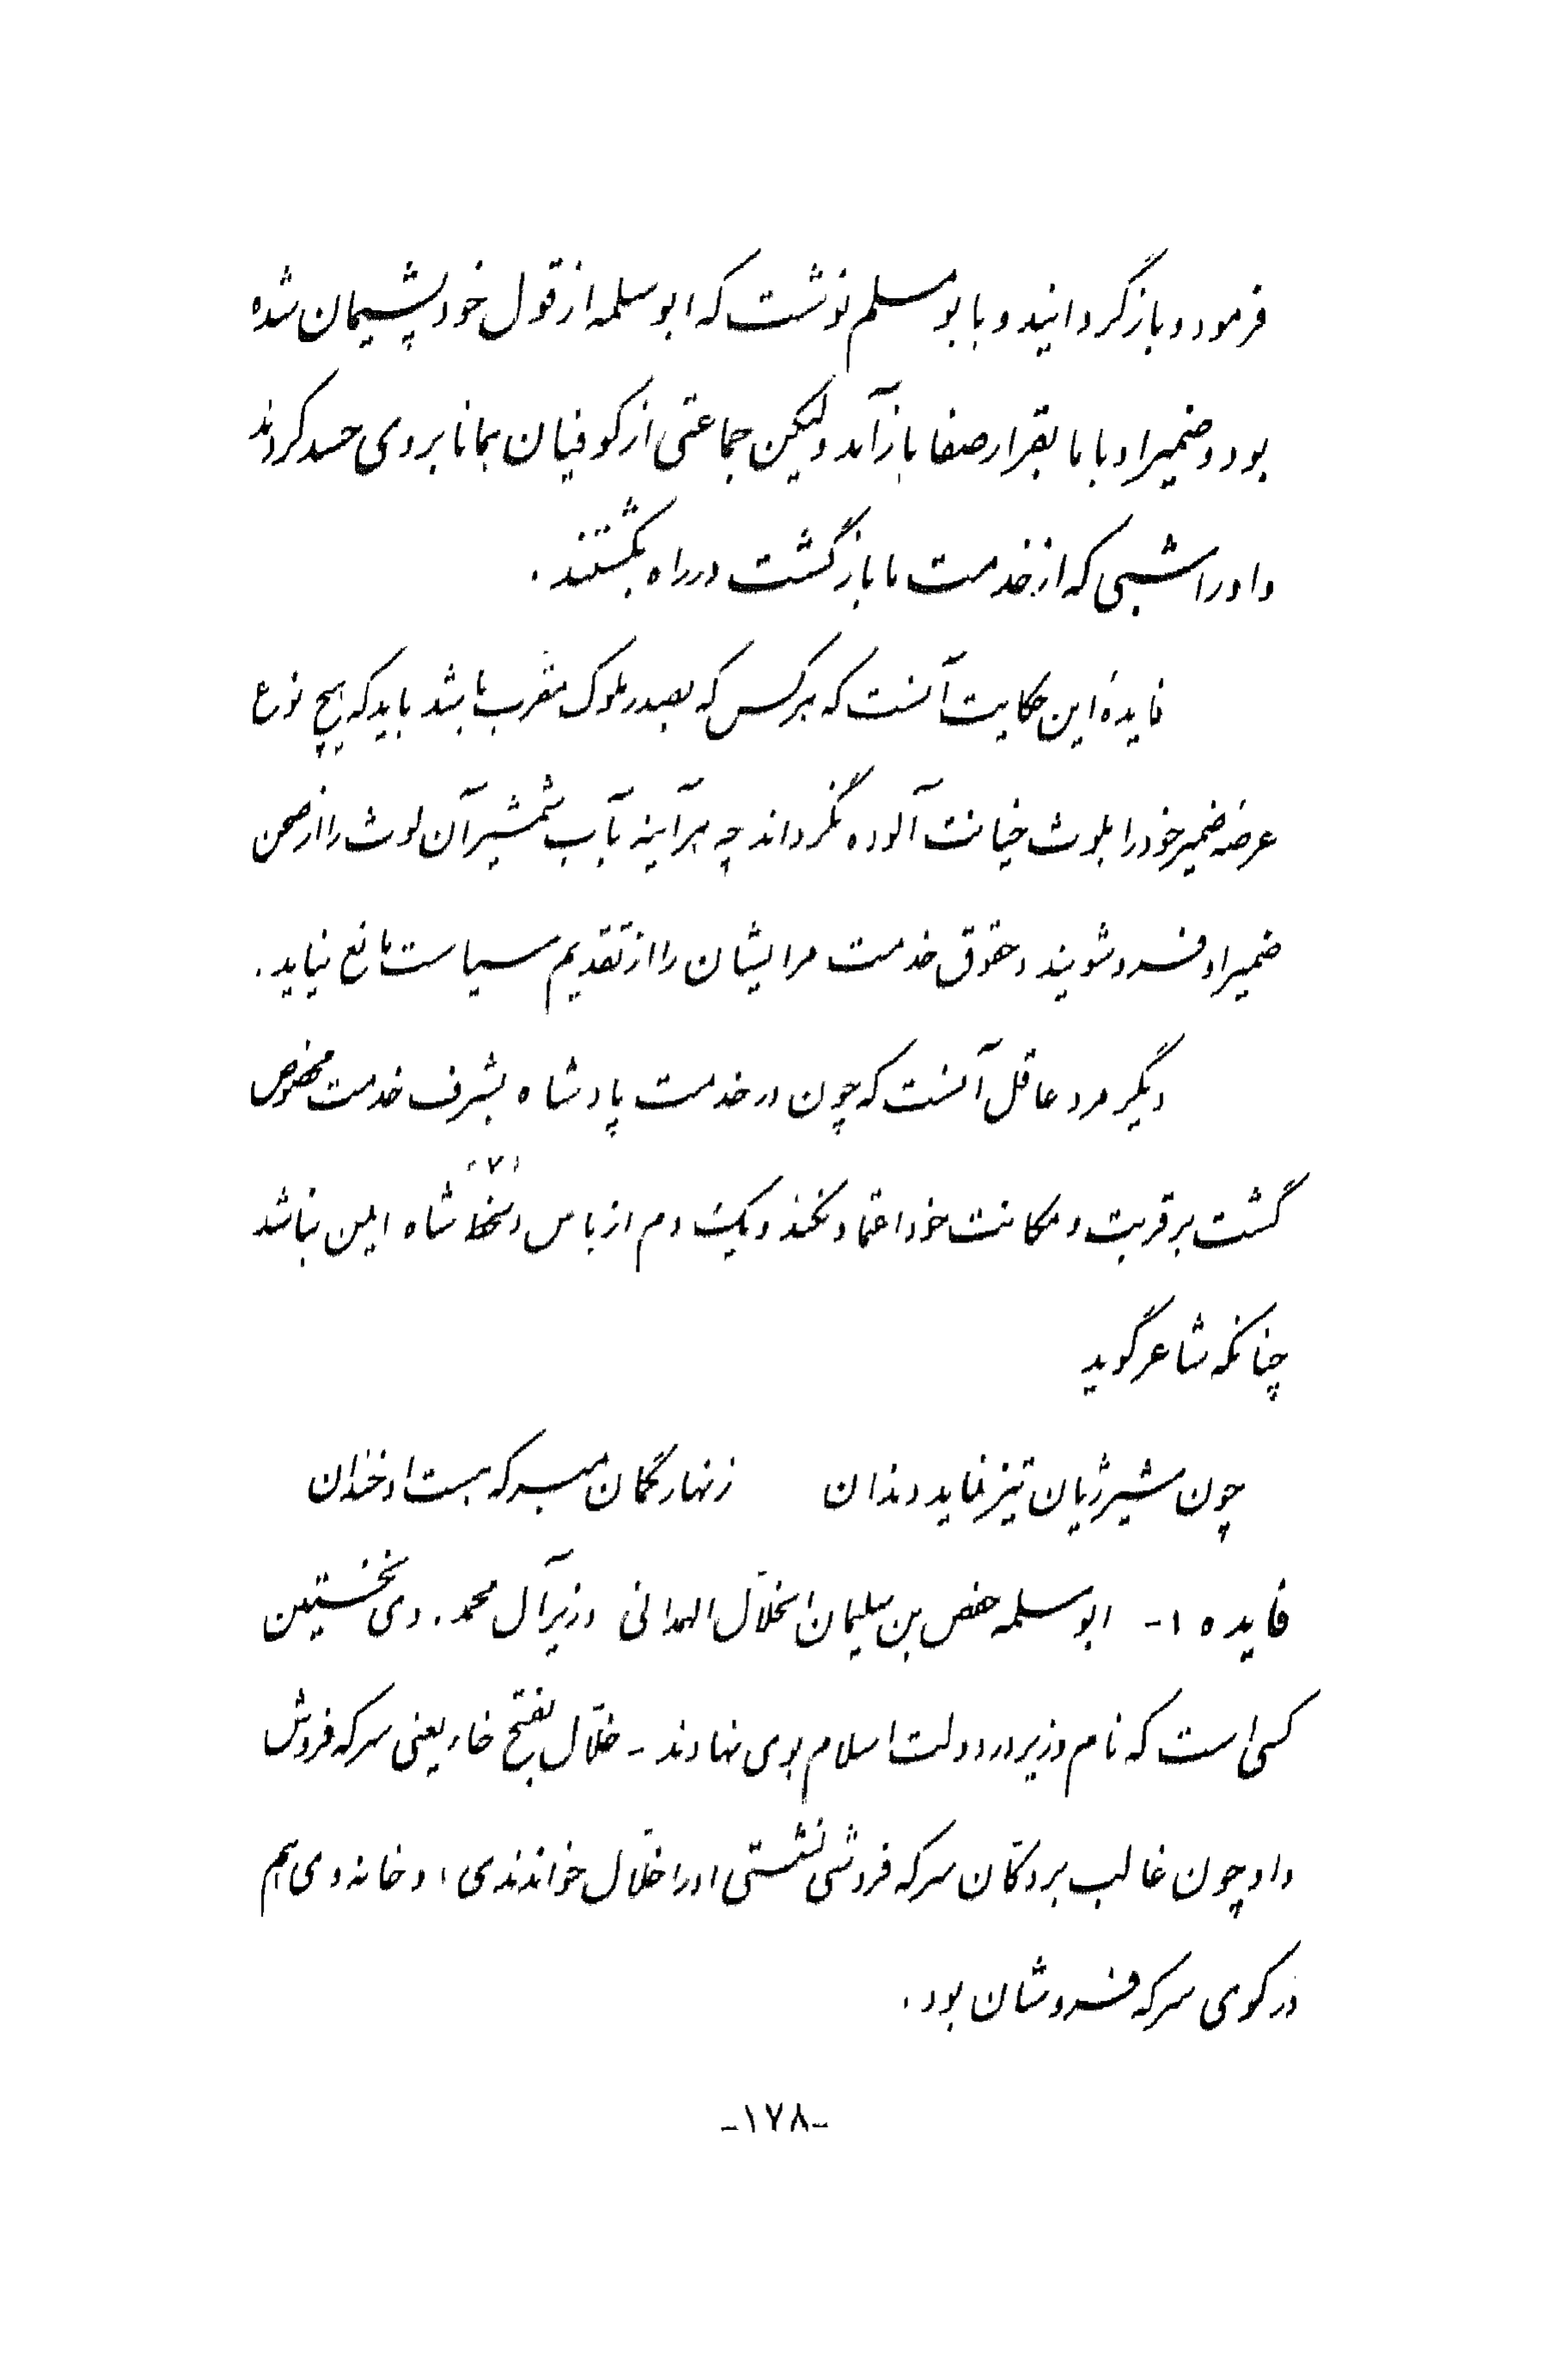 فرمود و بازگردانید و بابو مسلم نوشت که ابو سلمه از قول خود پشیمان شده
بود و ضمیر او با ما بقرار صفا باز آمد ولیکن جماعتی از کوفیان همانا بر وی حسد کردند
و او را شبی که از خدمت ما باز گشت در راه بکشتند .
فایدۀ این حکایت آنست که هر کس که بصدر ملوک مقرب باشد باید که هیچ نوع
عرضۀ ضمیر خود را بلوث خیانت آلوده نگرداند چه هر آینه بآب شمشیر آن لوث را از صحن
ضمیر او فرو شویند و حقوق خدمت مر ایشان را از تقدیم سیاست مانع نیاید .
دیگر مرد عاقل آنست که چون در خدمت پادشاه بشرف خدمت مخصوص
گشت بر قربت و مکانت خود اعتماد نکند و یک دم از باس و سخط شاه ایمن نباشد
(۷)
چنانکه شاعر گوید
چون شیر ژیان تیز نماید دندان زنهار گمان مبر که هست او خندان
فایده ۱- ابو سلمه حفص بن سلیمان الخلّال الهمدانی وزیر آل محمد . وی نخستین
کسی است که نام وزیر در دولت اسلام بوی نهادند - خلّال بفتح خاء یعنی سرکه فروش
و او چون غالب بر دکّان سرکه فروشی نشستی او را خلّال خواندندی ، و خانه وی هم
در کوی سرکه فروشان بود .
-۱۷۸-